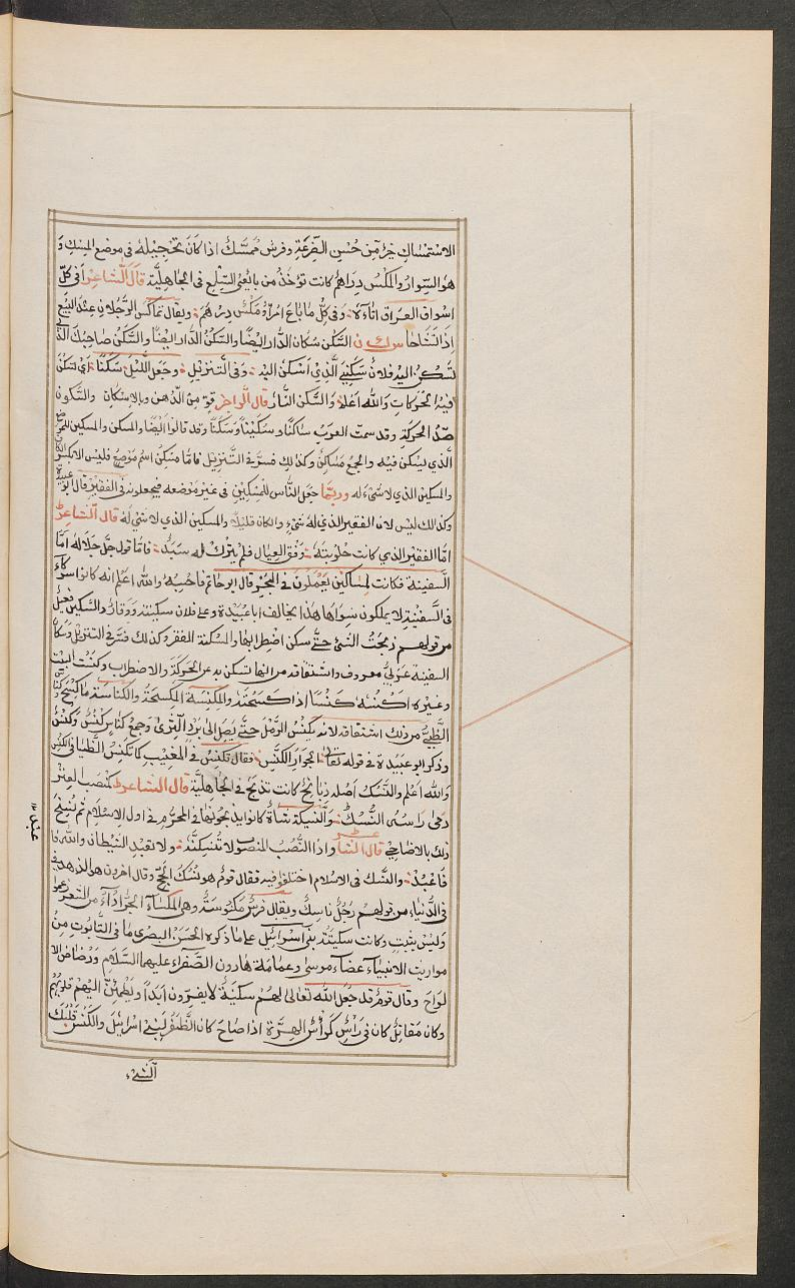 الاستمساك جزء من حُسن القرعة وفرش مُمسّك اذا كان تحجيله فى موضع المسك و
هو السِوار والمكس دراهم كانت تؤخذ من بائعى السّلع فى الجاهليّة قال الشاعر أفى كلّ
اسواق العراق اتاوة وفى كلّ ما باع امرؤ مكس درهم ويقال تماكس الرّجلان عند البيع
اذا تشاحّا س ك ن السّكن سُكان الدّار ايضًا والسّكنُ الدّار ايضًا والسّكن صاحبك الذى
تسكن اليه فلان سكنى الّذى اسكن اليه وفى التنزيل وجعل اللّيل سكنًا اى تسكن
فيه الحركات والله اعلم والسّكن النّار قال الراجز قوّمن الدّهن وبالاسكان والسّكون
ضدّ الحركة وقد سمت العرب ساكنا وسكينًا وسكنًا وقد قالوا ايضًا والمسكن والمسكِن الموضع
الّذى يسكن فيه والجمع مساكن وكذلك فسّر فى التّنزيل فامّا مسكِن اسم موضع فليس الا بكسر الكاف
والمسكين الذى لا شىء له وربّما جعل النّاس المسكين فى غير موضعه فيجعلونه فى الفقير قال ابو عبيدة
وكذلك ليس لان الفقير الذى له شىء وان كان قليلا والمسكين الذى لا شىء له قال الشاعر
امّا الفقير الذى كانت حلوبته وفق العيال فلم يترك له سبد فامّا قول جلّ جلاله امّا
السّفينة فكانت لمساكين يعملون فى البحر قال ابو حاتم فاحسبه والله اعلم انه كانوا شركاء
فى السّفينة لا يملكون سواها هذا يخالف ابا عبيدة وعلى فلان سكينة ووقار والسّكين فعيل
من قولهم ذبحت الشىء حتّى سكن اضطرابها والمسكنة الفقر وكذلك فسّر فى التنزيل وسكّان
السفينة عربىّ معروف واشتقاقه من انها تسكن به عن الحركة والاضطراب وكنست البيت
وغيره اكنسه كنسًا اذا كسحته والمِكنسة المِكسحة والكناسة ما كنسته وكناس
الظّبى من ذلك اشتقاقه لانه يكنس الرّمل حتّى يصل الى برد الثرى وجمع كناس كنس وكنّس
وذكر ابو عبيدة فى قوله تعالى الجوار الكنّس فقال تكنس فى المغيب كما تكنس الظّباء فى الكنس
والله اعلم والنّسك اصله ذبائح كانت تذبح فى الجاهليّة قال الشاعر كمنصب العتر
دمّى راسه النُسك والنسيكة شاة كانوا يذبحونها فى المحرّم فى اول الاسلام ثم نُسخ
ذلك بالاضاحى قال الشاعر واذا النّصب المنصوب لا تنسكنّه ولا تعبد الشيطان والله فا
فاعبد والنّسك فى الاسلام اختلفوا فيه فقال قوم هو نُسك الحجّ وقال اخرون هو الزهد
فى الدّنيا من قولهم رجُل ناسك ويقال فرس مكنوسة وهى الملساء الجرداء من الشعر زعموا
وليس بثبت وكانت سكينة بنى اسرائيل على ما ذكره الحسن البصرى ما فى التّابوت من
مواريث الانبياء عصاء موسى وعمامة هارون الصّفراء عليهما السّلام ورضاض الا
لواح وقال قوم قد جعل الله تعالى لهم سكينة لا يفرّون ابدًا وتطمئنّ اليهم قلوبهم
وكان مقاتل كان فى راس كرأس الهرّة اذا صاح كان الظّفر لبنى اسرائيل والكنس قلبك
الشىء
عبيد